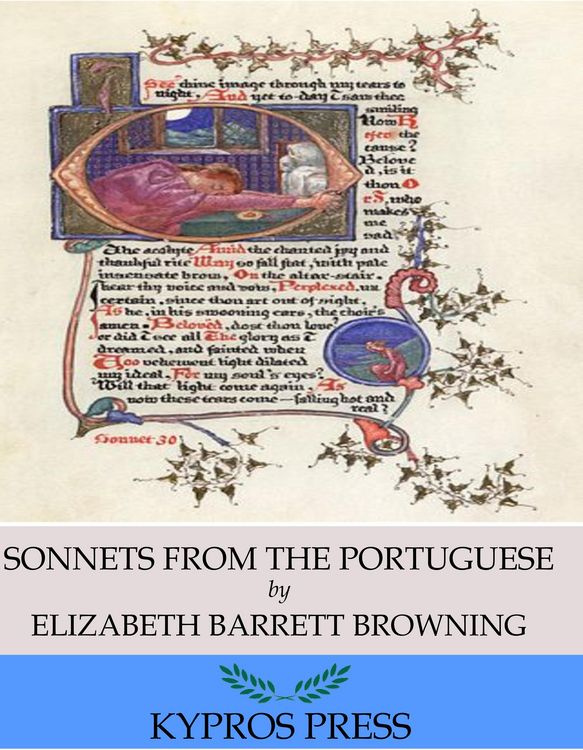 See thine image through my tears to
night, And yet to-day I saw thee
smiling
How R
efer the
cause?
Belove
d, is it
thou O
r I, who
makes
me
sad
The acolyte Amid the chanted joy and
thankful rite May so fall flat, with pale
insensate brow, On the altar-stair.
hear thy voice and vow, Perplexed, un
certain, since thou art out of sight,
As he, in his swooning ears, the choir's
amen. Belovèd, dost thou love?
or did I see all The glory as I
dreamed, and fainted when
Too vehement light dilated
my ideal, For my soul's eyes?
Will that light come again, As
now these tears come—falling hot and
real?
Sonnet 30
SONNETS FROM THE PORTUGUESE
by
ELIZABETH BARRETT BROWNING
KYPROS PRESS